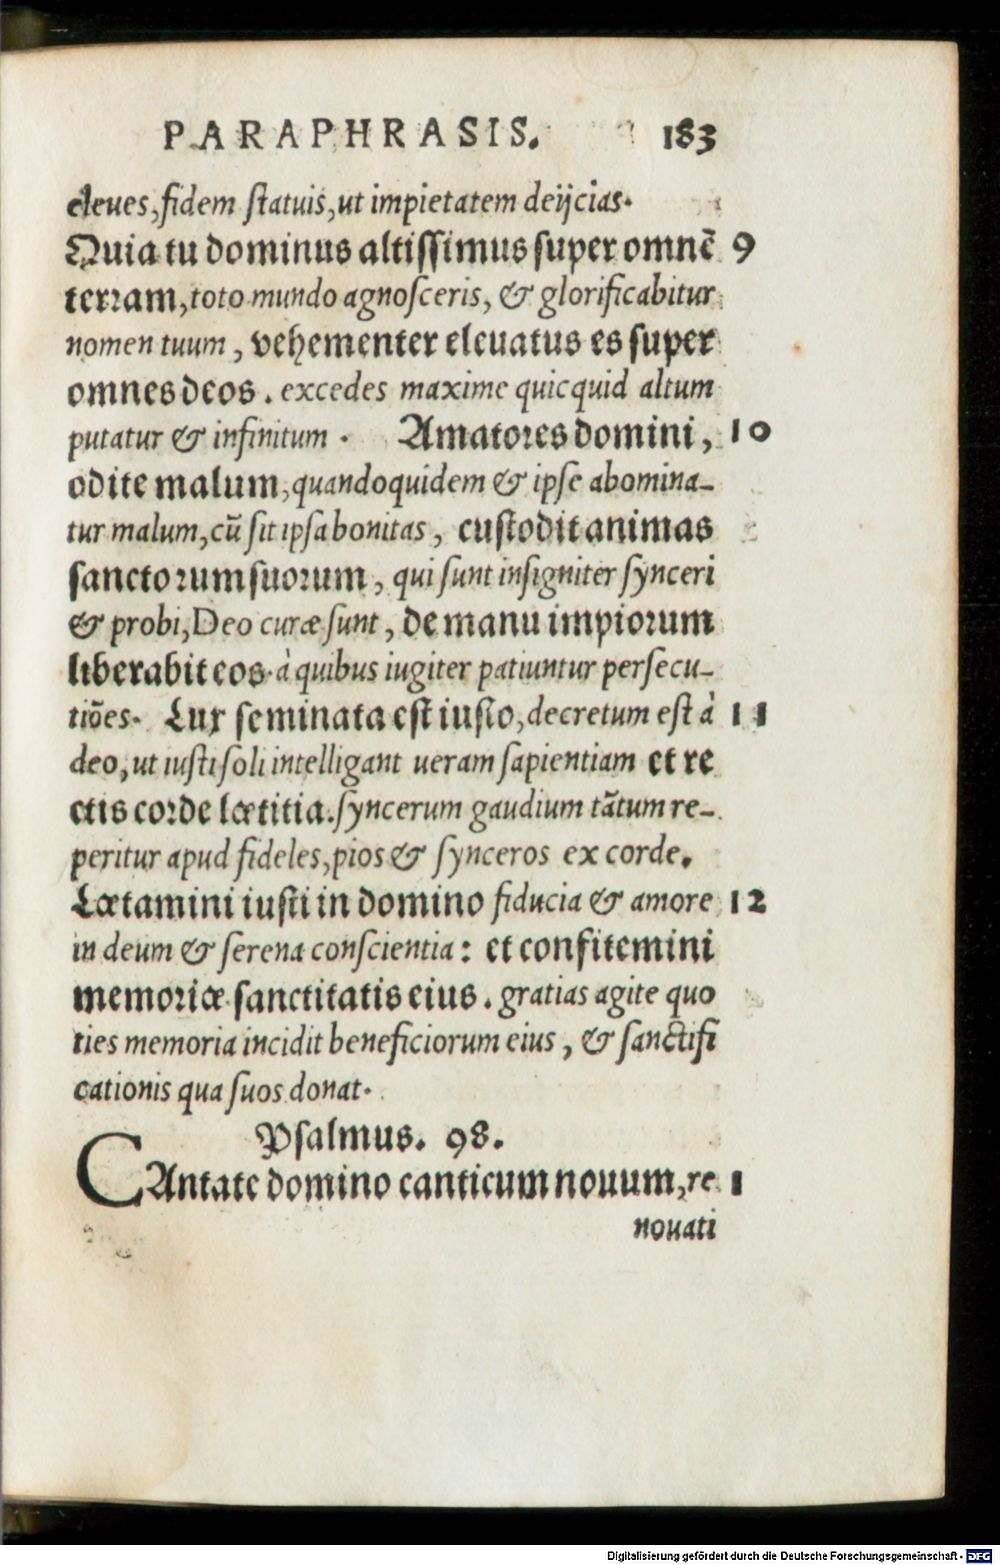 PARAPHRASIS. 183
eleues, fidem statuis, ut impietatem deijcias.
Quia tu dominus altissimus super omnē 9
terram, toto mundo agnosceris, & glorificabitur
nomen tuum, vehementer eleuatus es super
omnes deos. excedes maxime quicquid altum
putatur & infinitum. Amatores domini, 10
odite malum, quandoquidem & ipse abomina-
tur malum, cū sit ipsa bonitas, custodit animas
sanctorum suorum, qui sunt insigniter synceri
& probi, Deo curæ sunt, de manu impiorum
liberabit eos. à quibus iugiter patiuntur persecu-
tiōes. Lux seminata est iusto, decretum est à 11
deo, ut iusti soli intelligant ueram sapientiam et re
ctis corde lætitia. syncerum gaudium tātum re-
peritur apud fideles, pios & synceros ex corde.
Lætamini iusti in domino fiducia & amore 12
in deum & serena conscientia: et confitemini
memoriæ sanctitatis eius. gratias agite quo
ties memoria incidit beneficiorum eius, & sanctifi
cationis qua suos donat.
Psalmus. 98.
CAntate domino canticum nouum, re 1
nouati
Digitalisierung gefördert durch die Deutsche Forschungsgemeinschaft - DFG